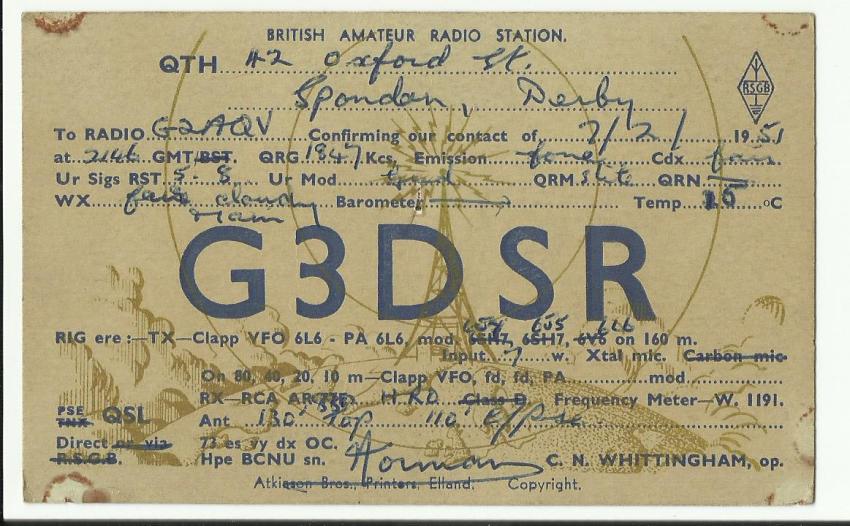 BRITISH AMATEUR RADIO STATION.
QTH 42 Oxford St.
Spondon, Derby
RSGB
To RADIO G2AQV Confirming our contact of 7/2/ 1951
at 2146 GMT BST. QRG 1847 Kcs, Emission fone Cdx fair
Ur Sigs RST 5-8 Ur Mod Good QRM slite QRN
WX fair cloudy Barometer Temp 15 °C
G3DSR
6SJ7 6J5 6L6
RIG ere :—TX—Clapp VFO 6L6 - PA 6L6, mod. 6SH7, 6SH7, 6V6 on 160 m.
Input 7 w. Xtal mic. Carbon mic
On 80, 40, 20, 10 m—Clapp VFO, fd, fd, PA mod
RX—RCA AR77E HRO Class D. Frequency Meter—W. 1191.
PSE TNX QSL Ant 130' Top 110'
Direct or via R.S.G.B. 73 es vy dx OC.
Hpe BCNU sn. Norman C. N. WHITTINGHAM, op.
Atkinson Bros., Printers, Elland. Copyright.